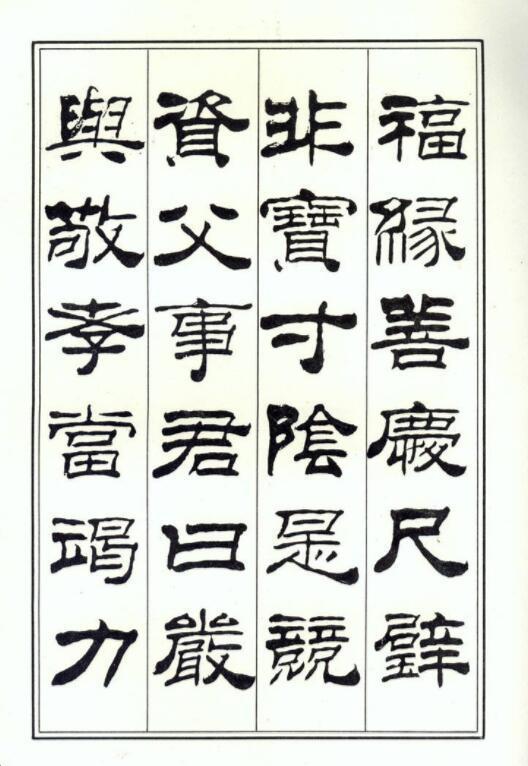 福縁善慶尺璧
非寶寸陰是競
資父事君曰嚴
與敬孝當竭力